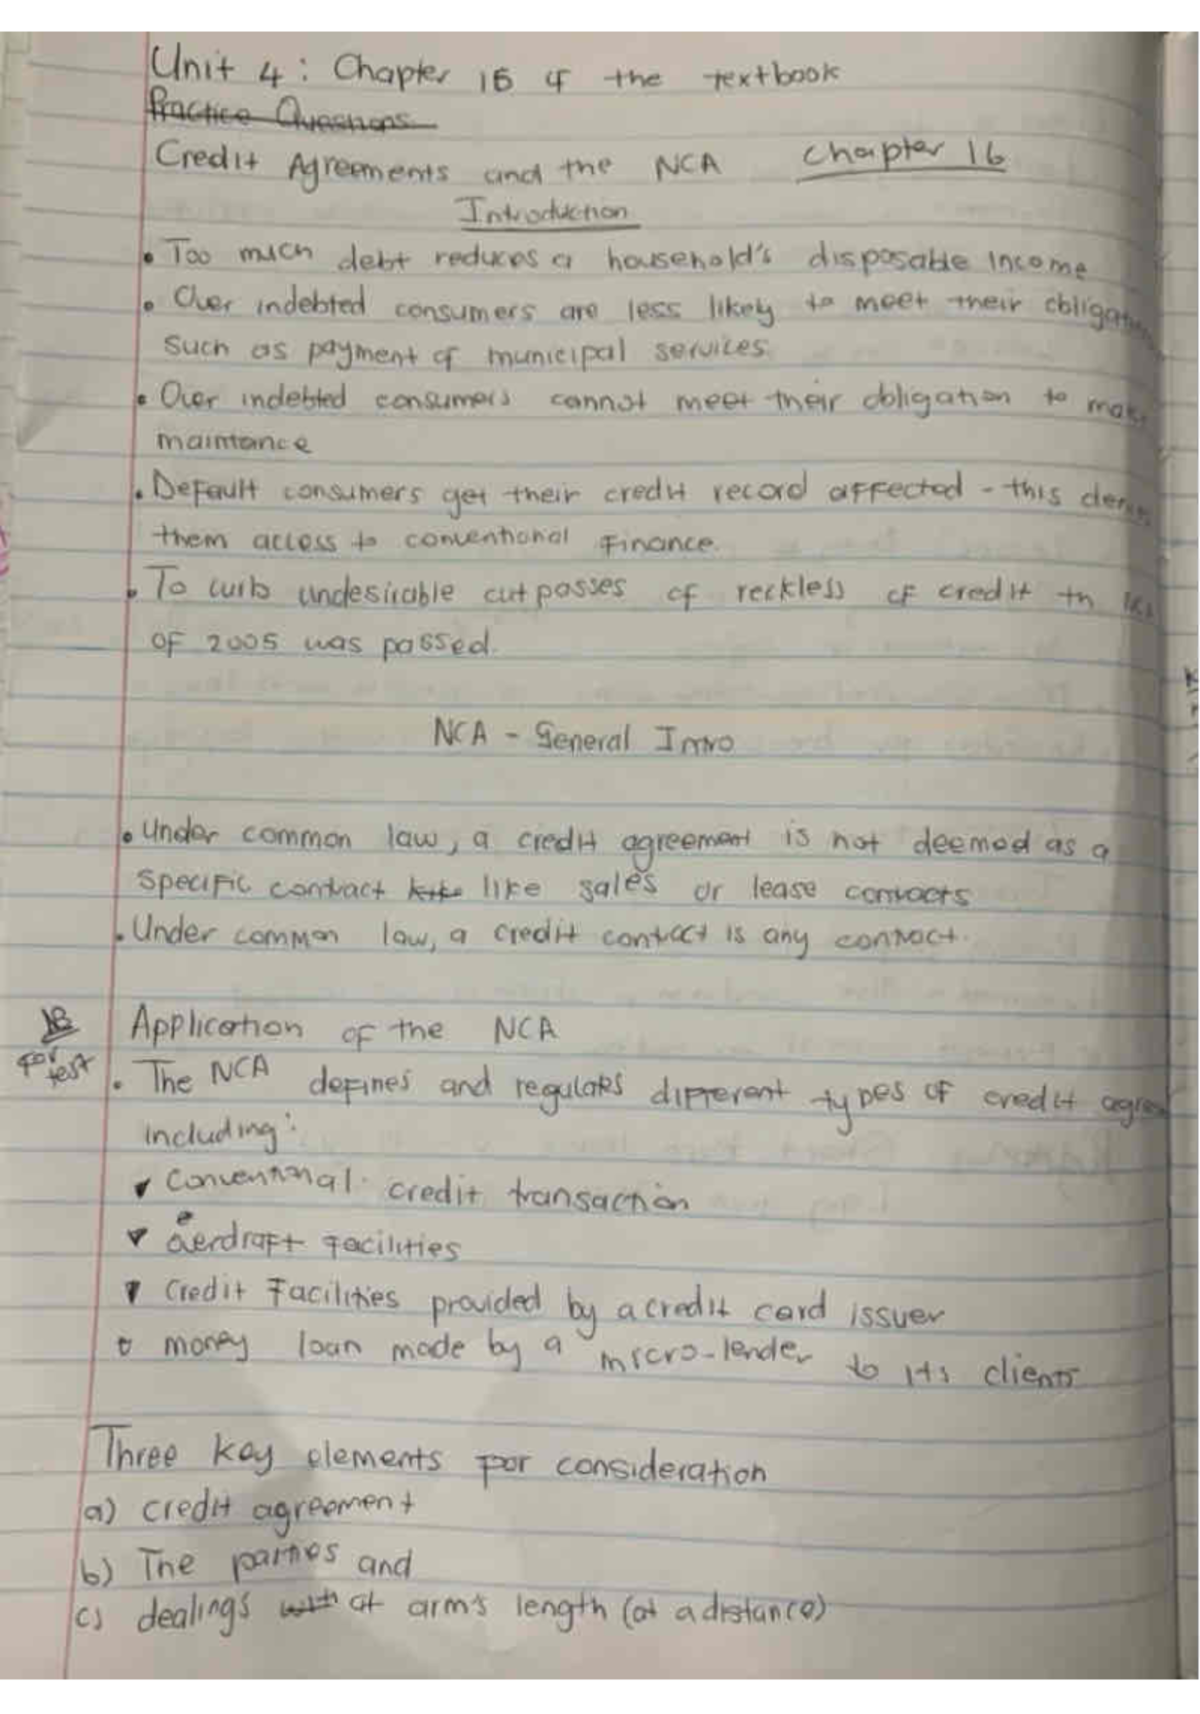 Unit 4: Chapter 15 of the textbook
Practice Questions
Credit Agreements and the NCA Chapter 16
Introduction
• Too much debt reduces a household's disposable income
• Over indebted consumers are less likely to meet their
such as payment of municipal services.
• Over indebted consumers cannot meet their obligation to
maintance
• Default consumers get their credit record affected - this
them access to conventional finance.
• To curb undesirable outpasses of reckless of credit th
of 2005 was passed.
NCA - General Intro
• Under common law, a credit agreement is not deemed as a
specific contract like sales or lease contracts
• Under common law, a credit contact is any contract.
NB for test
Application of the NCA
• The NCA defines and regulates different types of credit
including:
conventional credit transaction
overdraft facilities
credit facilities provided by a credit card issuer
money loan made by a micro-lender to its clients
Three key elements for consideration
a) credit agreement
b) The parties and
c) dealings with at arm's length (at a distance)